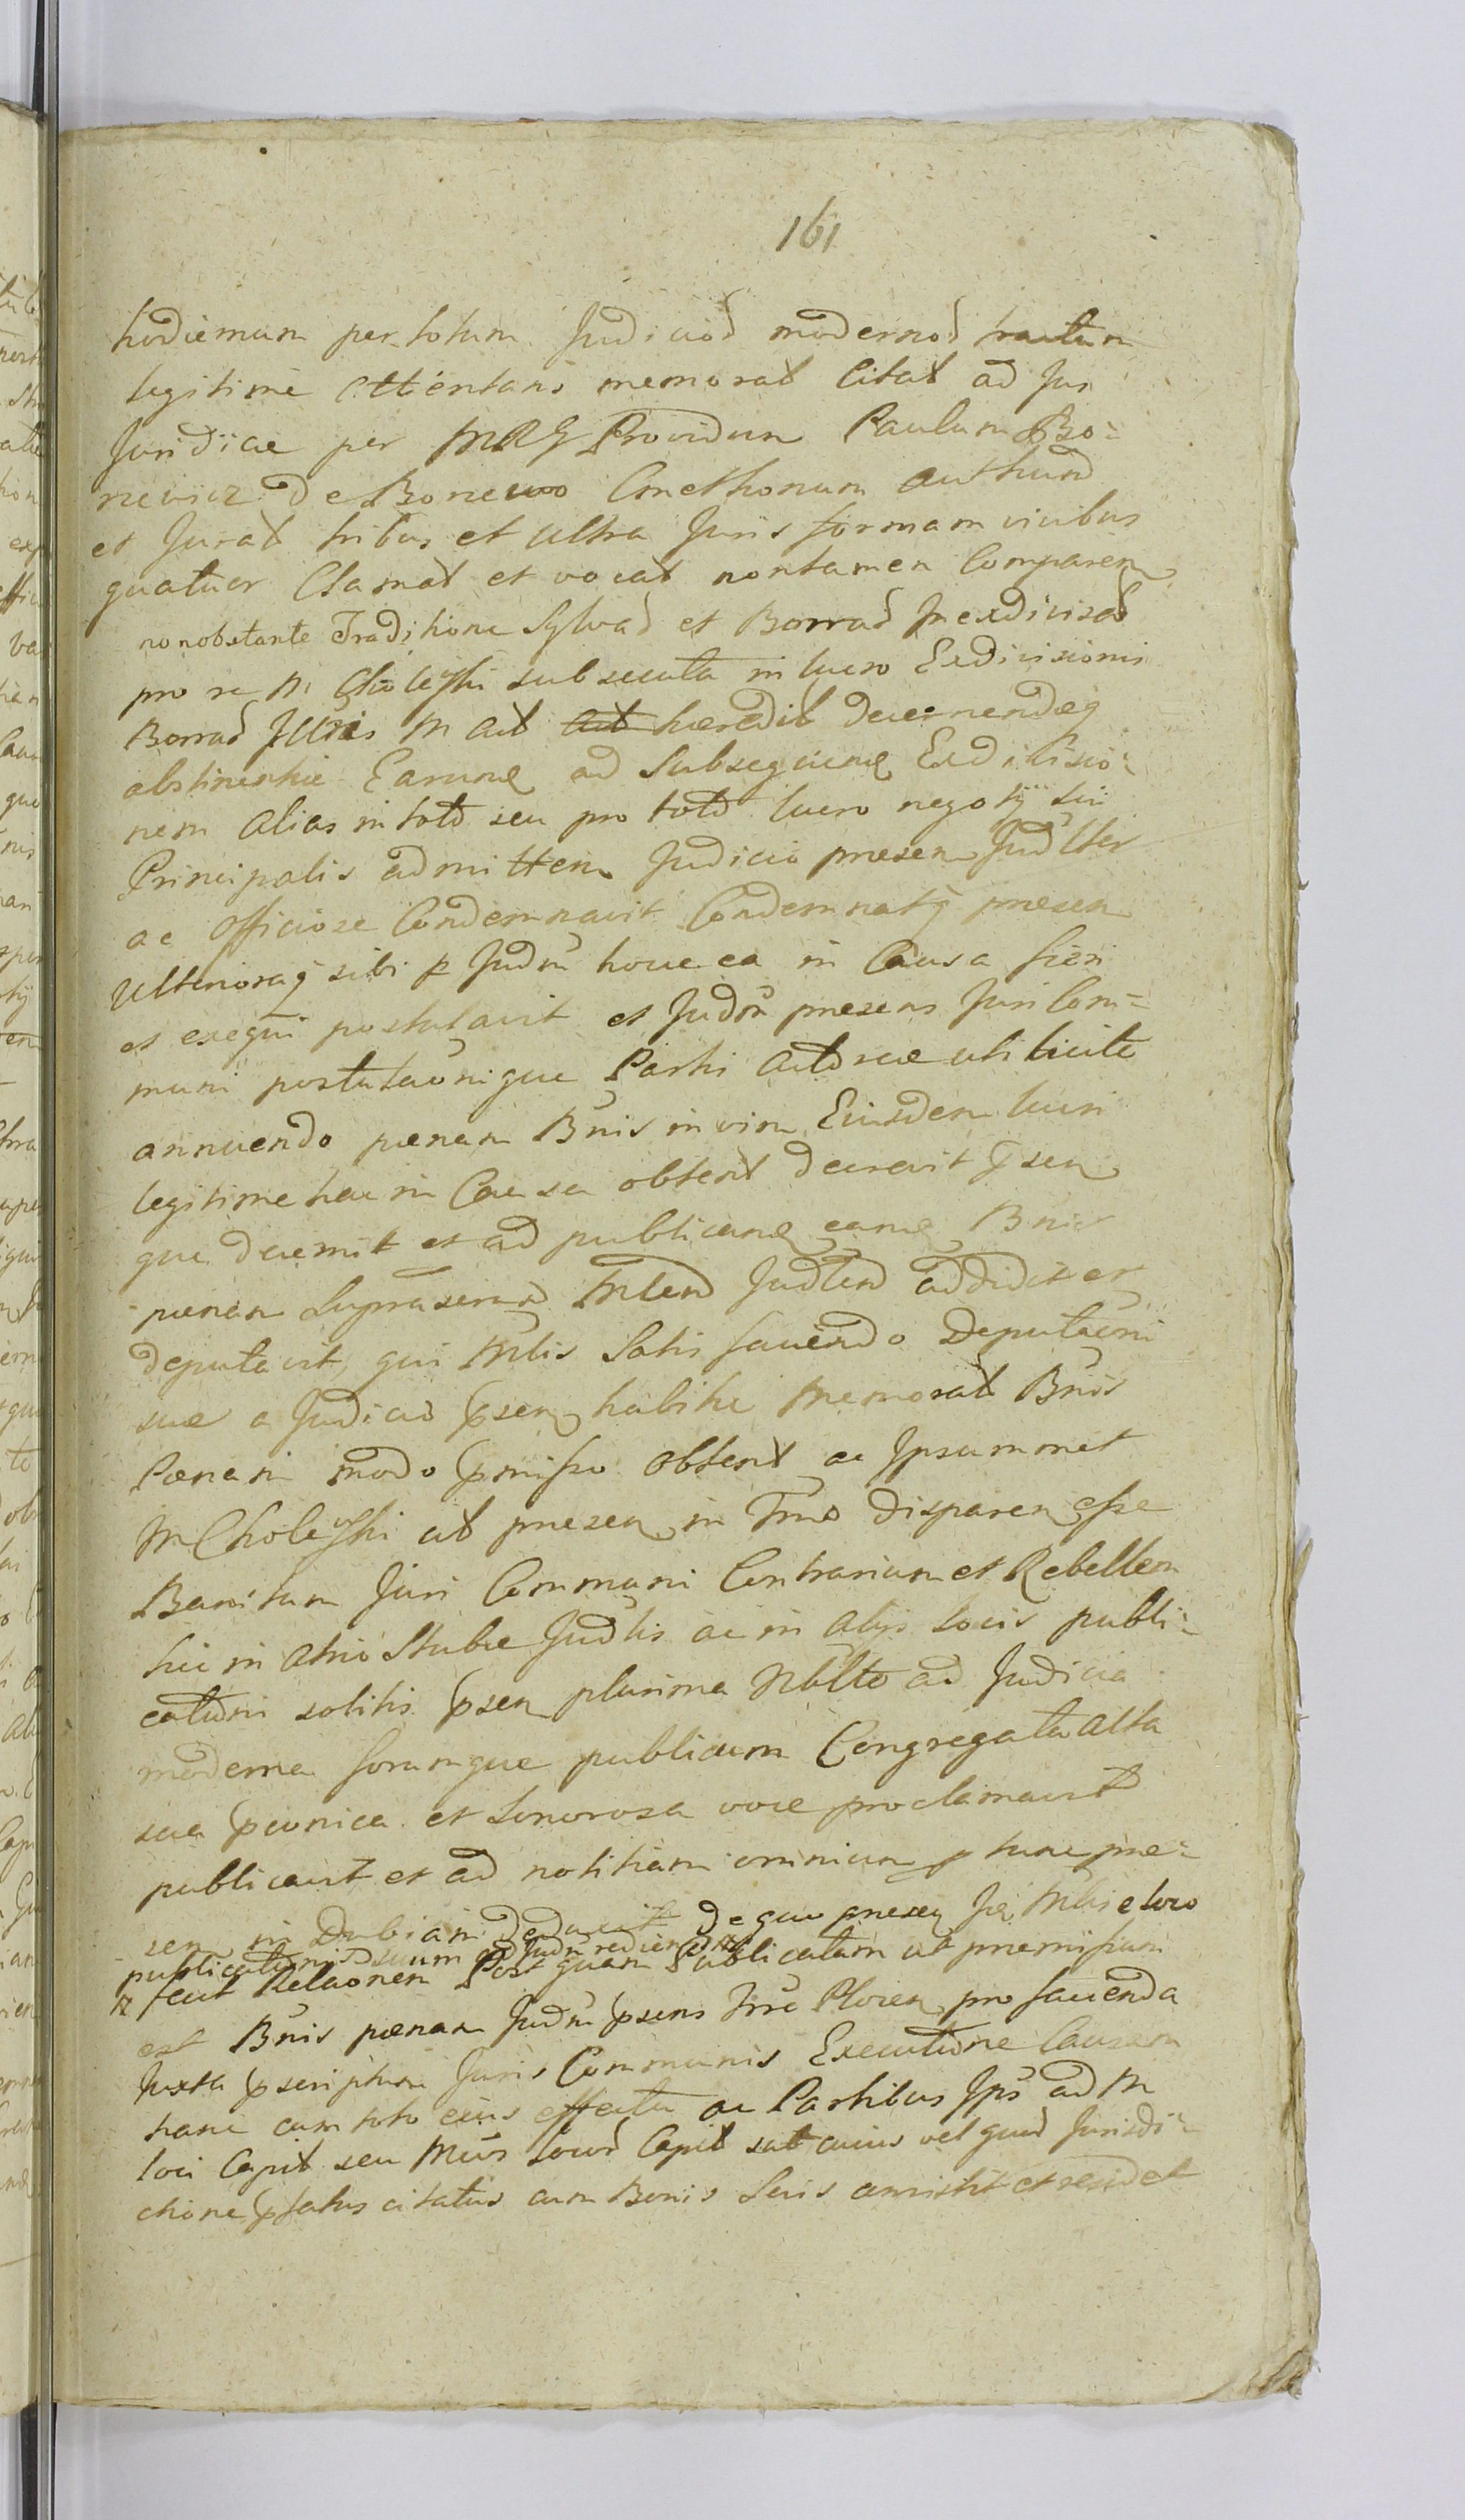 161
hodiernum per totum Judiciod modernod tractum
legitime attentans memorat Citat ad Jur
Juridice per MRG Providum Paulum Bo-
niewicz de Boniewo Cmethonum authund
et Jurat tribus et ultra Juris formam vicibus
quatuor Clamat et vocat non tamen Comparen
non obstante Traditione Sylvad et Borrad Inexdivisad
pro re M Cholewski subsecuta in lucro Exdivisionis
Borrad Juris M act hæredit decernendæq
abstinentiæ Earumq ad subsequenq Exdivisio-
nem alias in toto seu pro toto lucro negotÿ sui
Principalis admitten Judicio presen Judlter
ac officiose Condemnavit Condemnatÿ presen
Ulterioraq sibi p Judm hocce ea in Causa fieri
et exequi postulavit et Judm presens Juri Com-
muni postulaonique Parti Actoreæ uti licitæ
annuendo pænam Bnis in vim Eiusdem lucri
legitime hac in Causa obtent decrevit psen
que decernit et ad publicanq eamq Bnis
pænam Suprascript Mlem Judlem addidit et
deputavit, qui Mlis satisfaciendo Deputaoni
suæ a Judicio psen habitæ memorat Bnis
Pænam modo pmisso obtent ac Ipsummet
M Cholewski ut presen in Tmo disparen esse
Banitum Juri Communi Contrarium et Rebellem
hic in atrio Stubæ Judlis ac in alÿs locis publi-
cationi solitis psen plurima Nblte ad Judicia
moderna forumque publicum Congregata alta
sua pconica et sonorosa voce proclamavit
publicavit et ad notitiam omnium p tunc præ-
sen deduxit de quo presen Mlis e loco
publicationis suum ad Judm rediens
fecit Relaonem Post quam Publicatam ut premissum
est Bnis pænam Judm psens pro facienda
Juxta pscriptum Juris Communis Executione Causam
hanc cum toto eius effectu ac Partibus Ips ad M
loci Capit seu Mcus locod Capit sub cuius vel quod Jurisdi-
ctione pfatus citatus cum Bonis suis consistit et residet